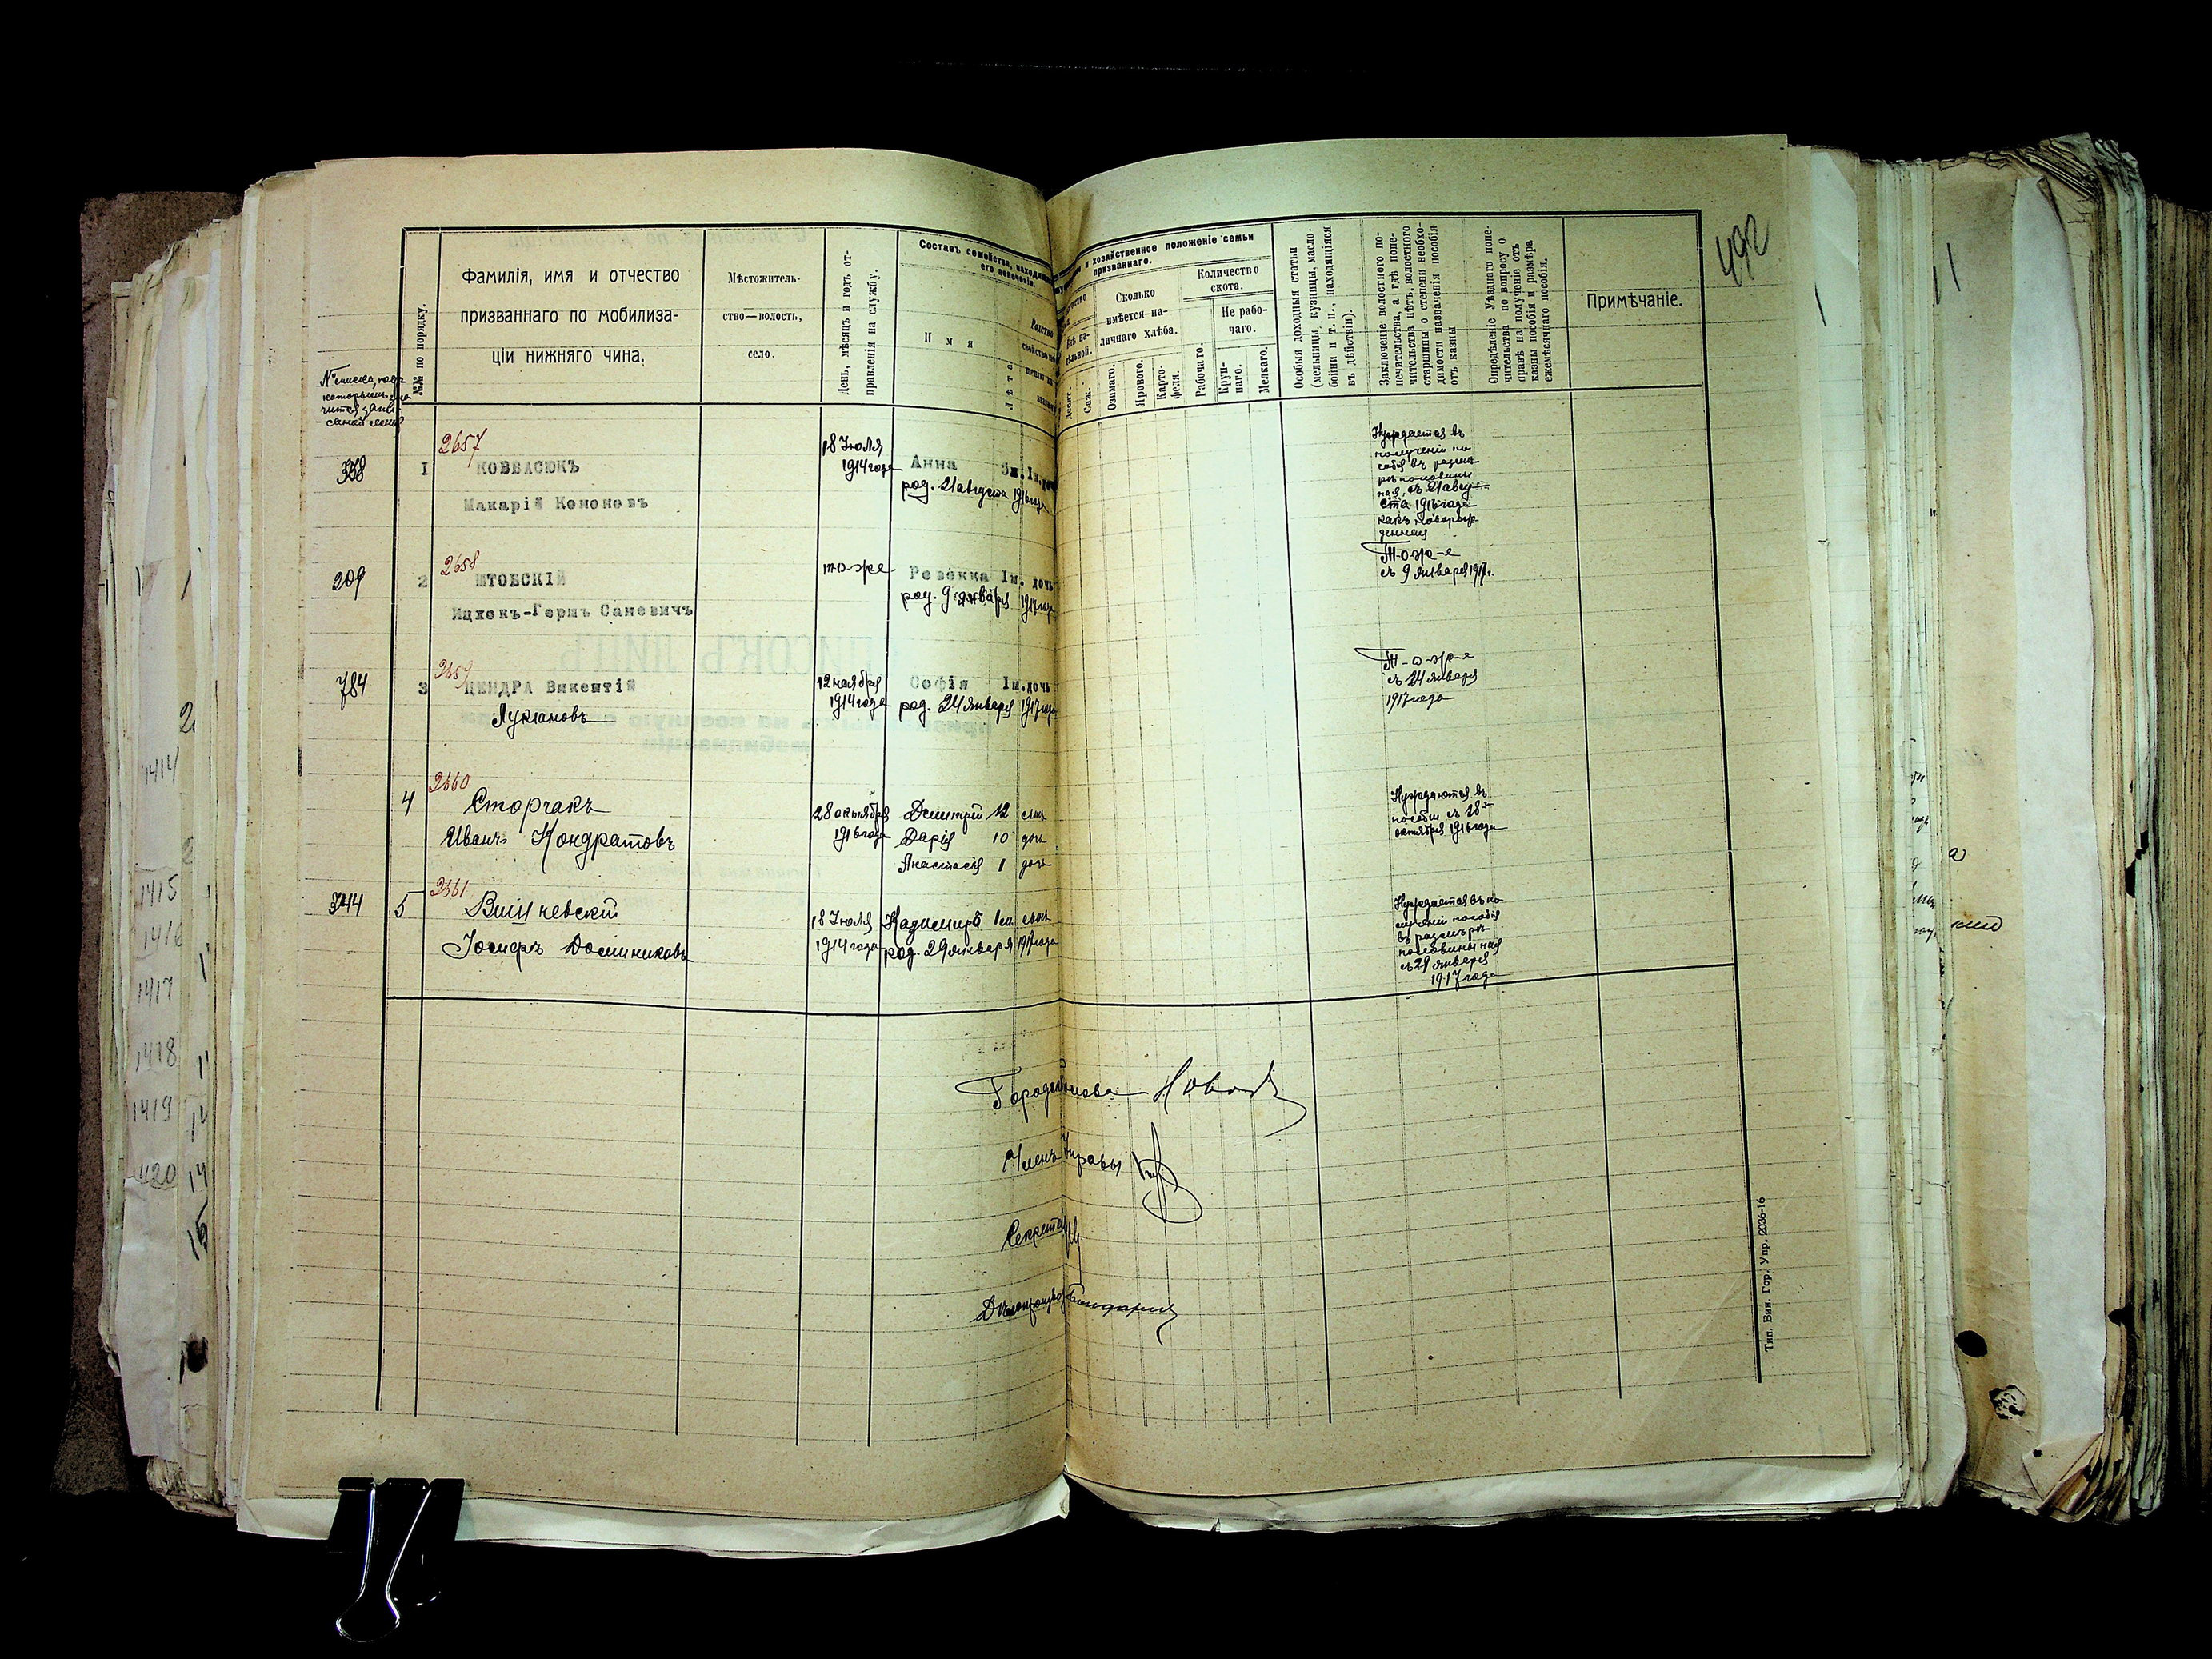 492
№ списка, подъ
которымъ
№№ по порядку.
Фамилія, имя и отчество
призваннаго по мобилиза-
ціи нижняго чина.
Мѣстожитель-
ство—волость,
село.
День, мѣсяцъ и годъ от-
правленія на службу.
Составъ семейства, находящ
его попеченіи.
И м я
Лѣта
Родство
и хозяйственное положеніе семьи
призваннаго.
Сколько
имѣется на-
личнаго хлѣба.
Десят.
Саж.
Озимаго.
Ярового.
Карто-
феля.
Количество
скота.
Рабочаго.
Не рабо-
чаго.
Круп-
наго.
Мелкаго.
Особыя доходныя статьи
(мельницы, кузницы, масло-
бойни и т. п., находящіяся
въ дѣйствіи).
Заключеніе волостного по-
печительства, а гдѣ попе-
чительства нѣтъ, волостного
старшины о степени необхо-
димости назначенія пособія
отъ казны
Опредѣленіе Уѣзднаго попе-
чительства по вопросу о
правѣ на полученіе отъ
казны пособія и размѣра
ежемѣсячнаго пособія.
Примѣчаніе.
338
1
2657
КОВБАСЮКЪ
Макарій Кононовъ
18 Іюля
1914 года
Анна
род. 21 августа 1916 года
Нуждается въ
полученіи по-
собія въ размѣ-
рѣ половины
ная, съ 21 авгу-
ста 1916 года
какъ новорож-
денная
209
2
2658
ШТОБСКІЙ
Ицхокъ-Гершъ Саневичъ
то-же
Ревекка 1м. дочь
род. 9 января 1917 года
То-же
съ 9 января 1917г.
784
3
2659
ЦЕНДРА Викентій
Лукіановъ
12 ноября
1914 года
Софія 1м. дочь
род. 24 января 1917 года
То-же
съ 24 января
1917 года
4
2660
Сторчакъ
Иванъ Кондратовъ
28 октября
1916 года
Дмитрій 12 сынъ
Дарія 10 дочь
Анастасія 1 дочь
Нуждаются въ
пособіи съ 28
октября 1916 года
344
5
2661
Вишневскій
Іосифъ Доминиковъ
18 Іюля
1914 года
Казимиръ 1м. сынъ
род. 29 января 1917 года
Нуждается въ по-
лученіи пособія
въ размѣрѣ
половины ная
съ 29 января
1917 года
Членъ Управы
Секретарь
Тип. Вин. Гор. Упр. 2036-16
2
1414
1415
1416
1417
1418
1419
1420